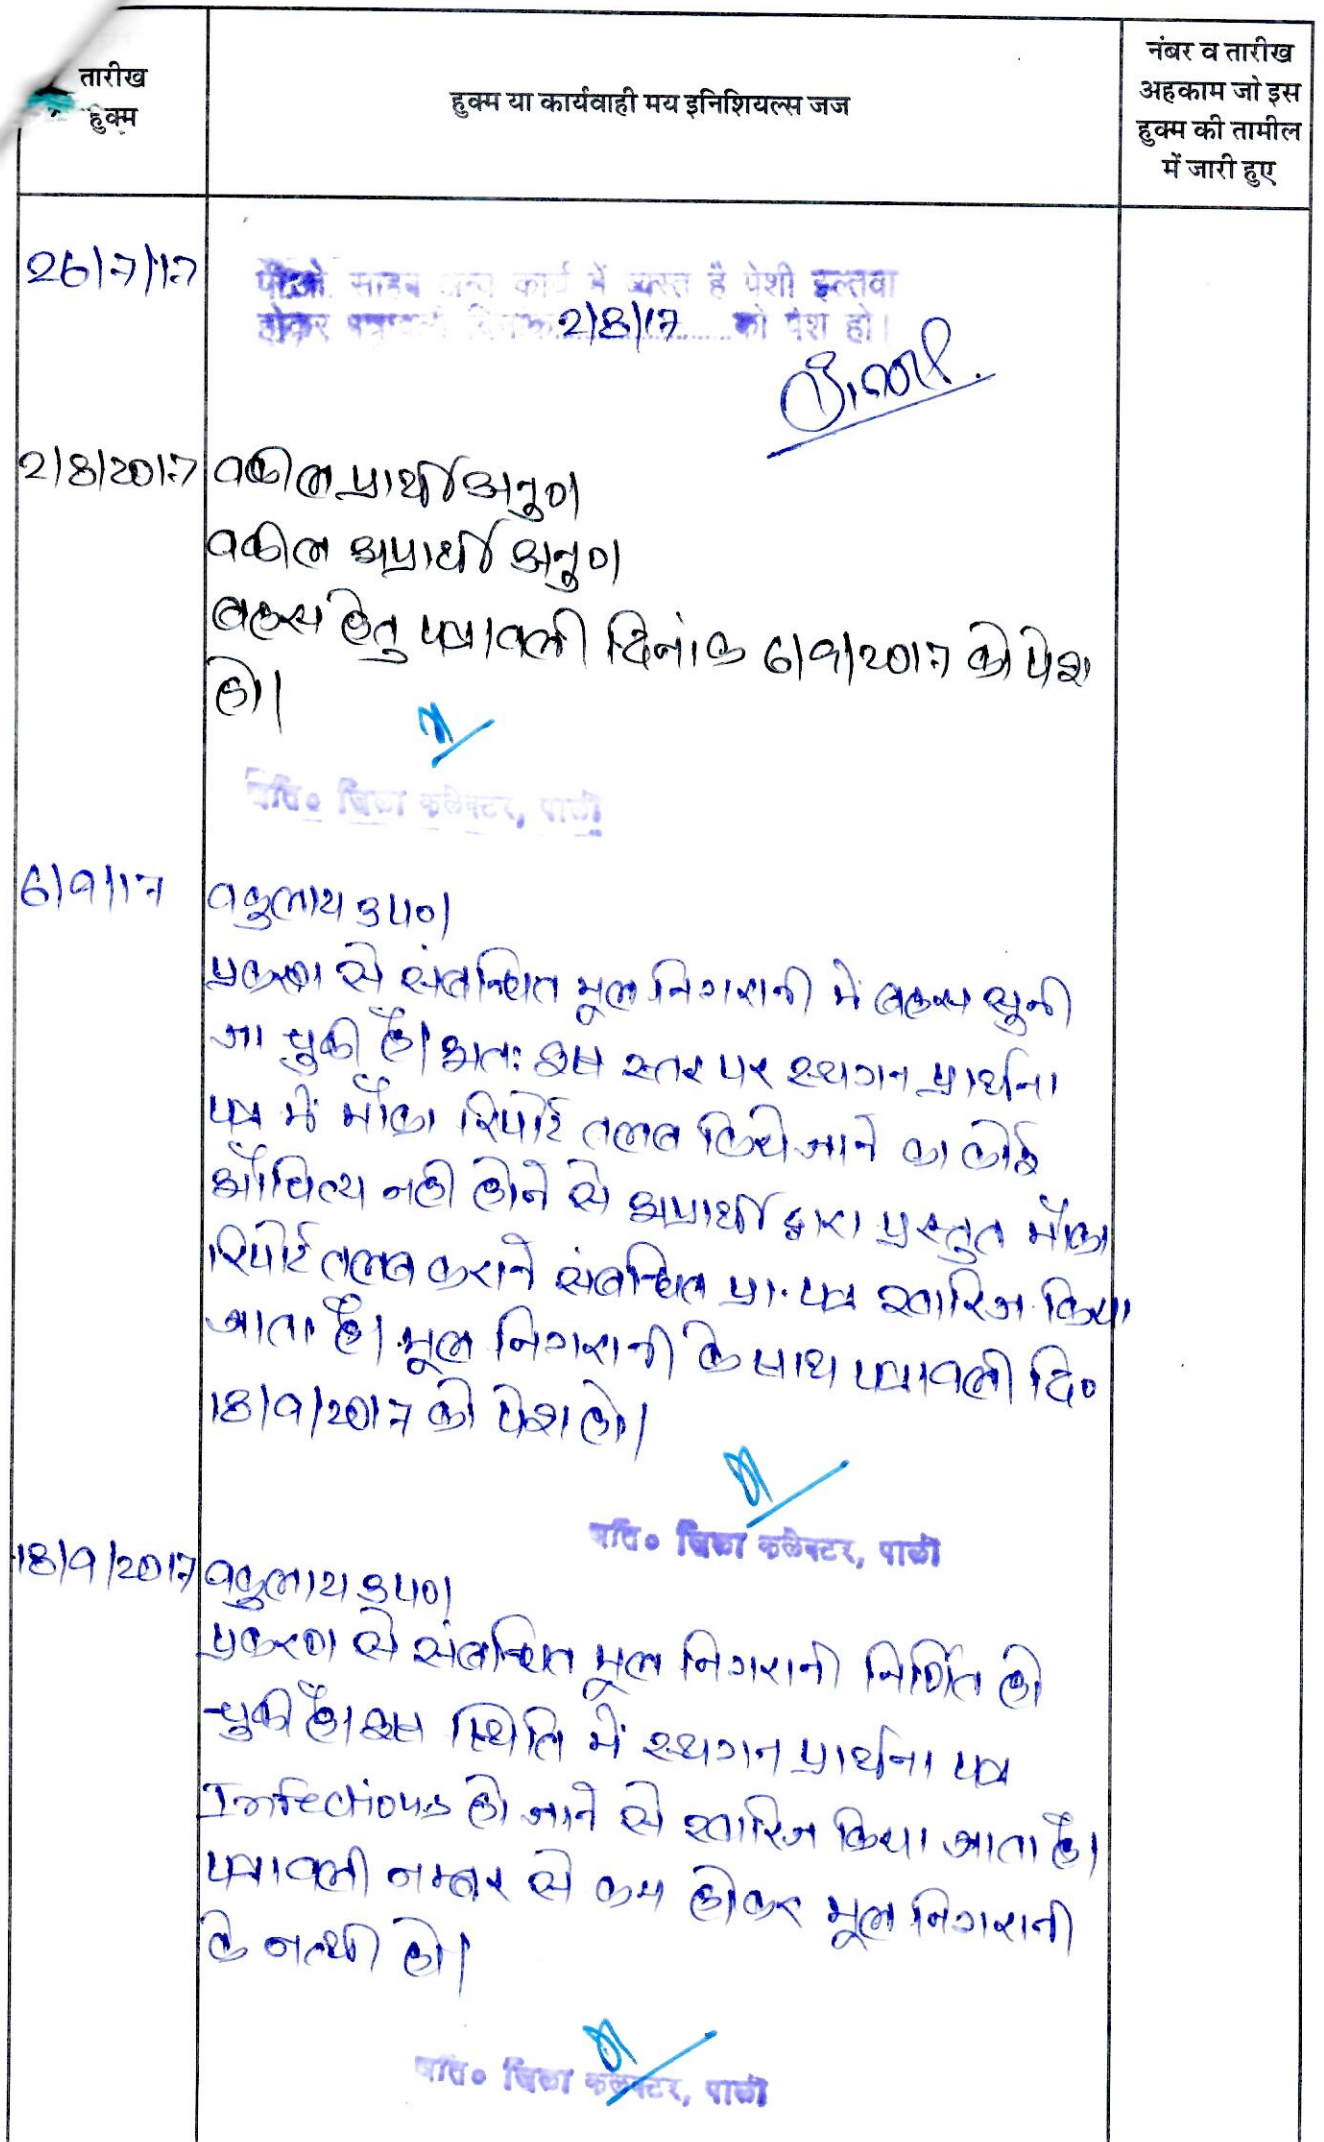 तारीख
हुक्म
हुक्म या कार्यवाही मय इनिशियल्स जज
नंबर व तारीख
अहकाम जो इस
हुक्म की तामील
में जारी हुए
26/7/17
पीओ साहब अन्य कार्य में व्यस्त है पेशी इल्तवा
होकर पत्रावली दिनांक 2/8/17 को पेश हो।
2/8/2017 वकील प्रार्थी अनु०।
वकील अप्रार्थी अनु०।
बहस हेतु पत्रावली दिनांक 6/9/2017 को पेश
हो।
अति० जिला कलेक्टर, पाली
6/9/17 वकुलाय उप०।
प्रकरण से संबन्धित मूल निगरानी मे बहस सुनी
जा चुकी है। अतः इस स्तर पर स्थगन प्रार्थना
पत्र में मौका रिपोर्ट तलब किये जाने का कोई
औचित्य नही होने से अप्रार्थी द्वारा प्रस्तुत मौका
रिपोर्ट तलब कराने संबन्धित प्रा. पत्र खारिज किया
जाता है। मूल निगरानी के साथ पत्रावली दि०
18/9/2017 को पेश हो।
अति० जिला कलेक्टर, पाली
18/9/2017 वकुलाय उप०।
प्रकरण से संबन्धित मूल निगरानी निर्णित हो
चुकी है। इस स्थिति में स्थगन प्रार्थना पत्र
Infectious हो जाने से खारिज किया जाता है।
पत्रावली नम्बर से कम होकर मूल निगरानी
के नत्थी हो।
अति० जिला कलेक्टर, पाली